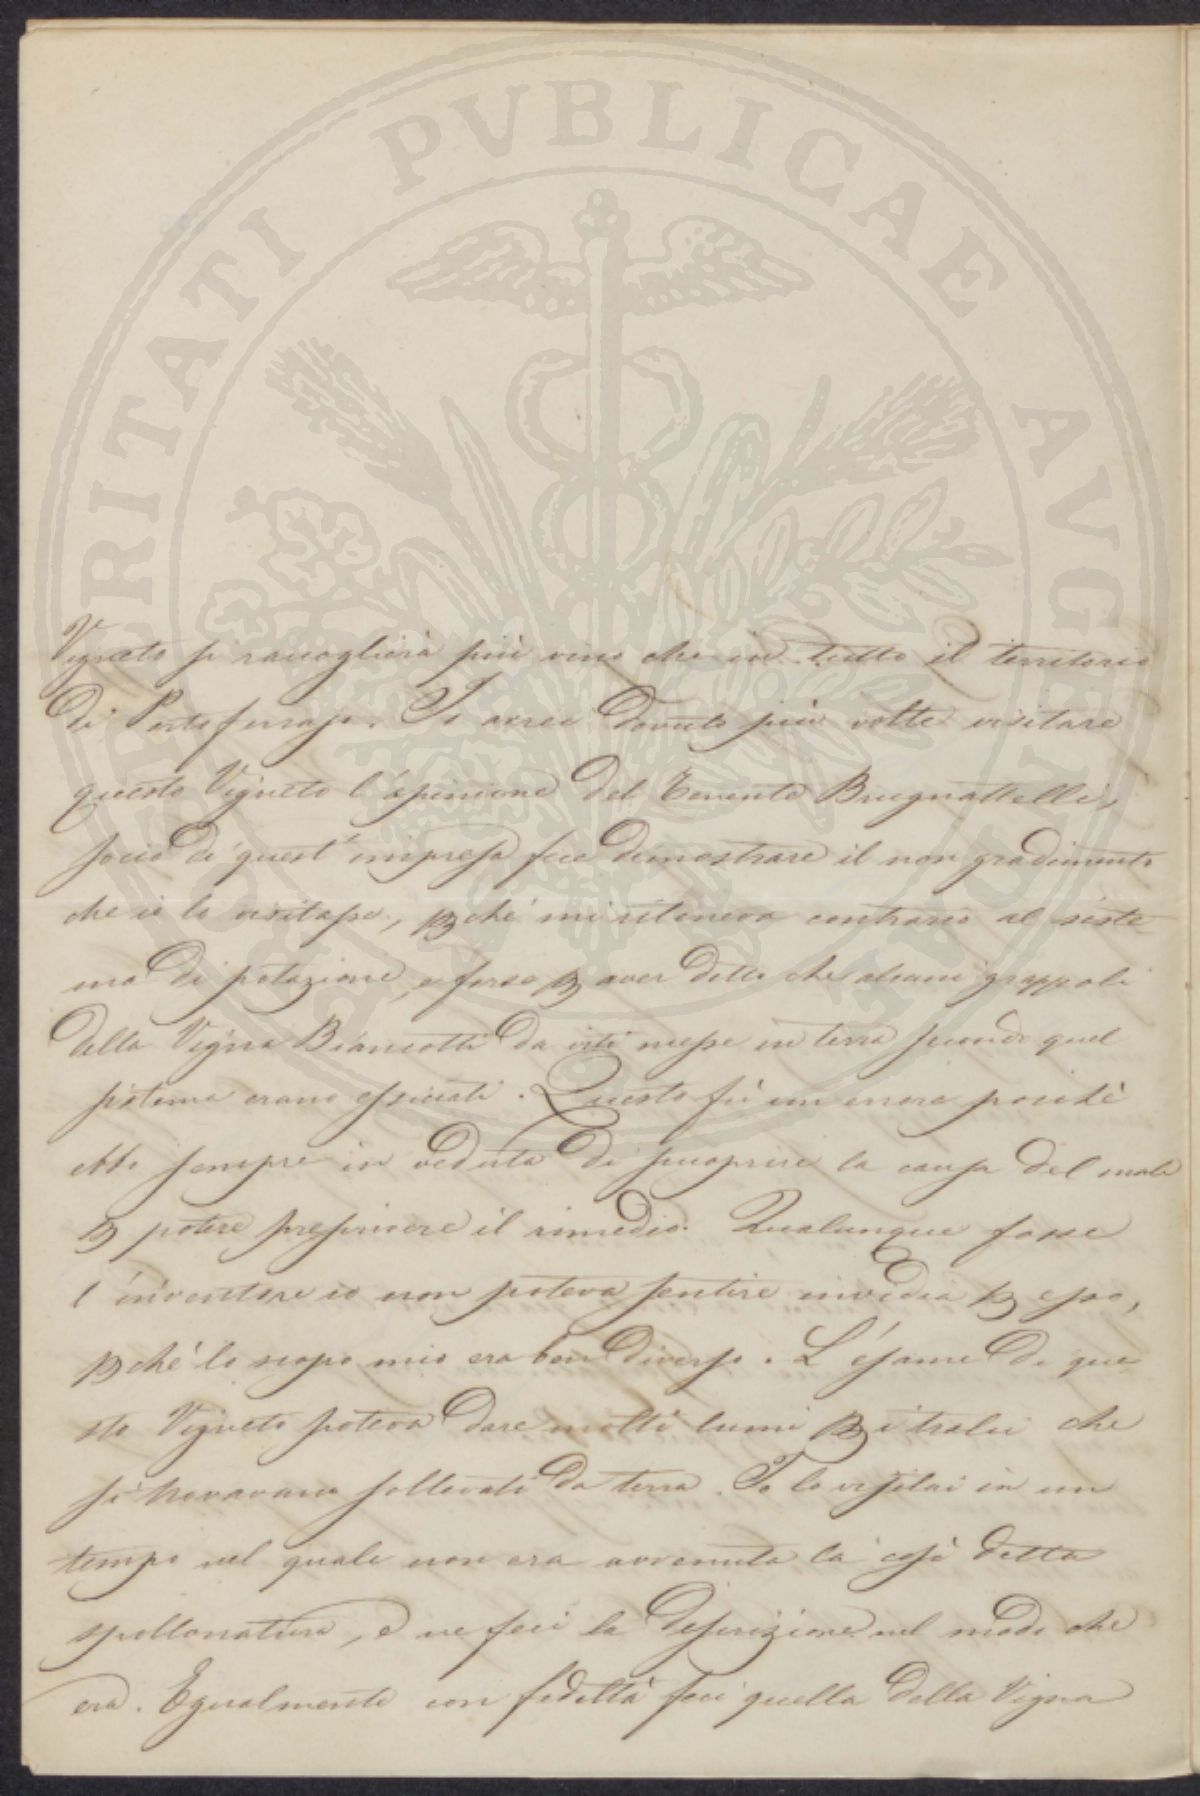 PROSPERITATI PVBLICAE AVGENDAE
Vigneto si raccoglierà più vino che in tutto il territorio
di Portoferrajo. Io avrei dovuto più volte visitare
questo Vigneto l'opinione del Tenente Brugnattelli,
socio di quest'impresa fece dimostrare il non gradimento
che io lo visitassi, pché mi riteneva contrario al siste
ma di potazione, e forse p aver detto che alcuni grappoli
della Vigna Biancotti da viti messe in terra secondo quel
sistema erano essiccati. Questo fù un errore poichè
ebbi sempre in veduta di scuoprire la causa del male
p potere prescrivere il rimedio. Qualunque fosse
l'inventore io non poteva sentire invidia p esso,
pché lo scopo mio era ben diverso. L'esame di que
sto Vigneto poteva dare molti lumi p i tralci che
si trovavano sollevati da terra. Io lo visitai in un
tempo nel quale non era avvenuta la così detta
spollonatura, e ne feci la descrizione nel modo che
era. Egualmente con fedeltà feci quella della Vigna